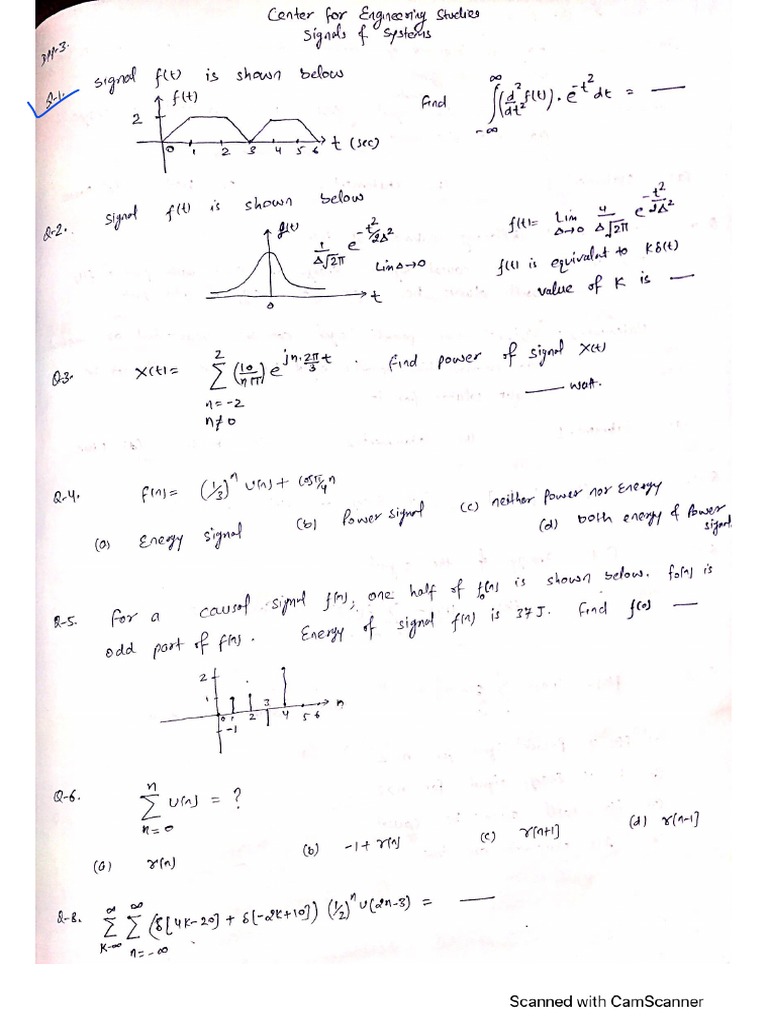 Center for Engineering Studies
Signals & Systems
DPP-3.
Q-1. Signal f(t) is shown below
f(t)
2
0 1 2 3 4 5 6 t (sec)
find ∫_{-∞}^{∞} (d²/dt² f(t)) · e^{-t²} dt = ___
Q-2. Signal f(t) is shown below
f(t)
1/(Δ√2π) e^{-t²/2Δ²}
Lim Δ→0
0 t
f(t) = Lim_{Δ→0} 4/(Δ√2π) e^{-t²/2Δ²}
f(t) is equivalent to Kδ(t)
value of K is ___
Q-3. X(t) = Σ_{n=-2, n≠0}^{2} (10/nπ) e^{jn·2π/3 t} . find power of signal X(t)
___ watt.
Q-4. f[n] = (1/3)^n u[n] + cos π/4 n
(a) Energy signal (b) Power signal (c) neither Power nor Energy
(d) both energy & Power signal
Q-5. For a causal signal f[n], one half of f₀[n] is shown below. f₀[n] is
odd part of f[n]. Energy of signal f[n] is 37 J. Find f[0] ___
2
1
0 1 2 3 4 5 6 n
-1
Q-6. Σ_{n=0}^{n} u[n] = ?
(a) r[n] (b) -1+r[n] (c) r[n+1] (d) r[n-1]
Q-8. Σ_{k=-∞}^{∞} Σ_{n=-∞}^{∞} (δ[4k-20] + δ[-2k+10]) (1/2)^n u[2n-3] = ___
Scanned with CamScanner